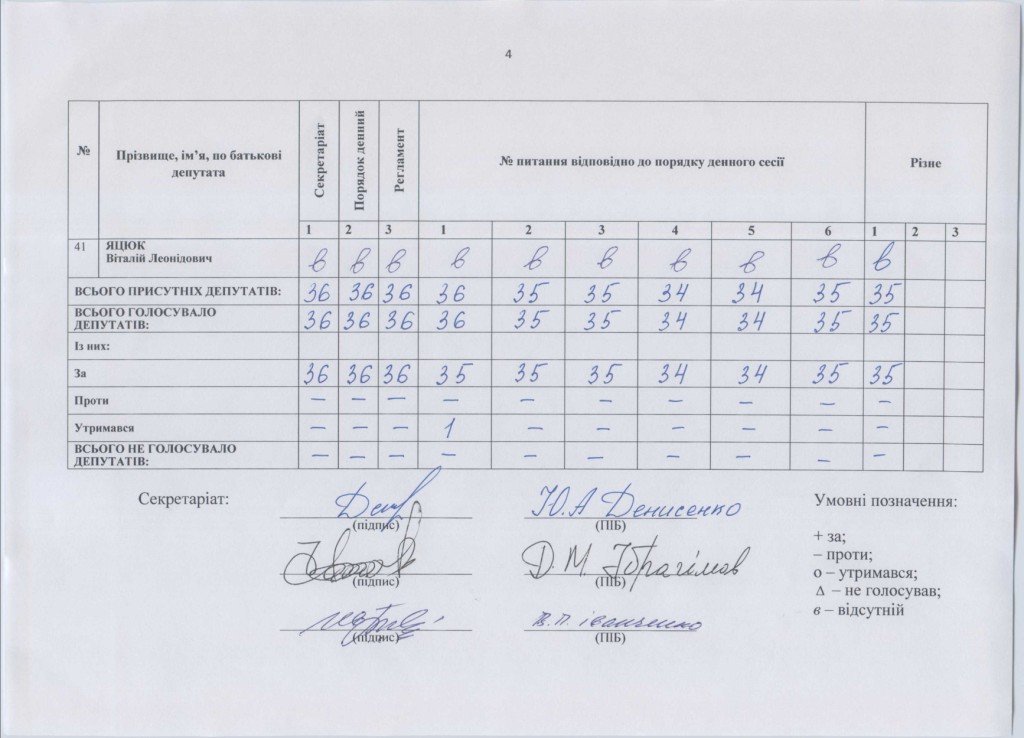 4
№ Прізвище, ім’я, по батькові депутата Секретаріат Порядок денний Регламент № питання відповідно до порядку денного сесії Різне
1 2 3 1 2 3 4 5 6 1 2 3
41 ЯЦЮК
Віталій Леонідович в в в в в в в в в в
ВСЬОГО ПРИСУТНІХ ДЕПУТАТІВ: 36 36 36 36 35 35 34 34 35 35
ВСЬОГО ГОЛОСУВАЛО
ДЕПУТАТІВ: 36 36 36 36 35 35 34 34 35 35
Із них:
За 36 36 36 35 35 35 34 34 35 35
Проти – – – – – – – – – –
Утримався – – – 1 – – – – – –
ВСЬОГО НЕ ГОЛОСУВАЛО
ДЕПУТАТІВ: – – – – – – – – – –
Секретаріат: Ю.А Денисенко Умовні позначення:
(підпис) (ПІБ)
+ за;
– проти;
Д.М. Ібрагімов
(підпис) (ПІБ)
о – утримався;
Δ – не голосував;
в – відсутній
В.П. Іванченко
(підпис) (ПІБ)